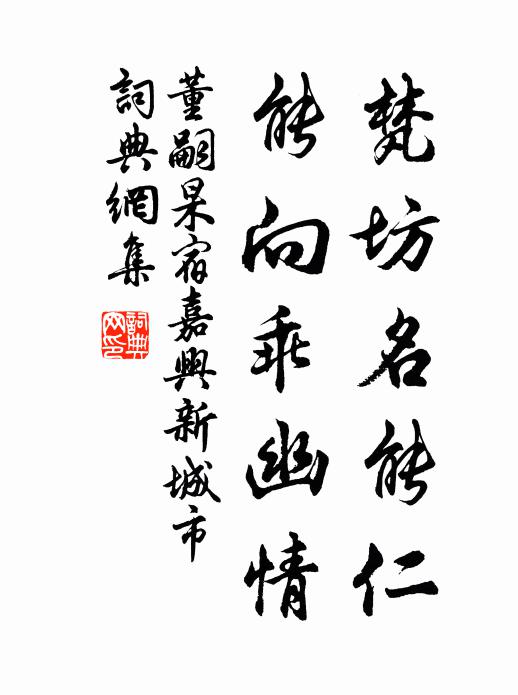 梵坊名能仁
能向乖幽情
董嗣杲宿嘉興新城市
詞典網集
詞典
网印